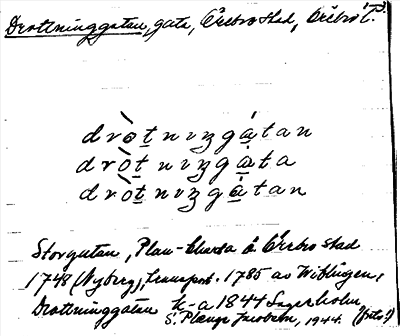 Drottninggatan, gata, Örebro stad, Örebro l.
dròt̲nıŋgátan
dròt̲nıŋgáta
dròt̲nıŋgátan
Storgatan, Plan-Charta å Örebro stad
1748 (Nyberg), transport. 1785 av Wiblingen,
Drottninggatan k-a 1844 Lagerholm
S. Plænge Jacobson, 1944. (foto!)